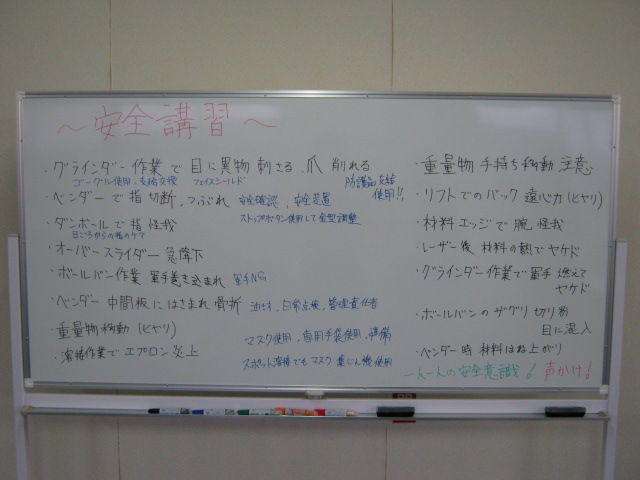 ～安全講習～
・グラインダー作業で目に異物刺さる、爪削れる
ゴーグル使用、支給交換 フェイスシールド 防護品支給使用!!
・ベンダーで指切断、つぶれ 安全確認、安全装置
ストップボタン使用して金型調整
・ダンボールで指怪我
日ごろからの指のケア
・オーバースライダー急降下
・ボールバン作業 軍手巻き込まれ 軍手NG
・ベンダー中間板にはさまれ骨折 治せす、日常点検、管理責任者
・重量物移動(ヒヤリ)
マスク使用、専用手袋使用、準備
・溶接作業でエプロン炎上
スポット溶接でもマスク 集じん機使用
・重量物手持ち移動注意
・リフトでのバック 遠心力(ヒヤリ)
・材料エッジで腕怪我
・レーザー後 材料の熱でヤケド
・グラインダー作業で軍手燃えてヤケド
・ボールバンのザグリ 切り粉
目に混入
・ベンダー時 材料はね上がり
一人一人の安全意識! 声かけ!